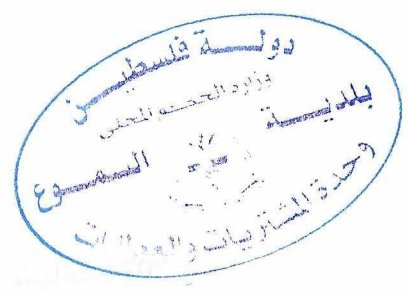 دولـــة فلسطيـــن
وزارة الحكم المحلي
بلديـــة الســموع
وحدة المشتريات والعطاءات